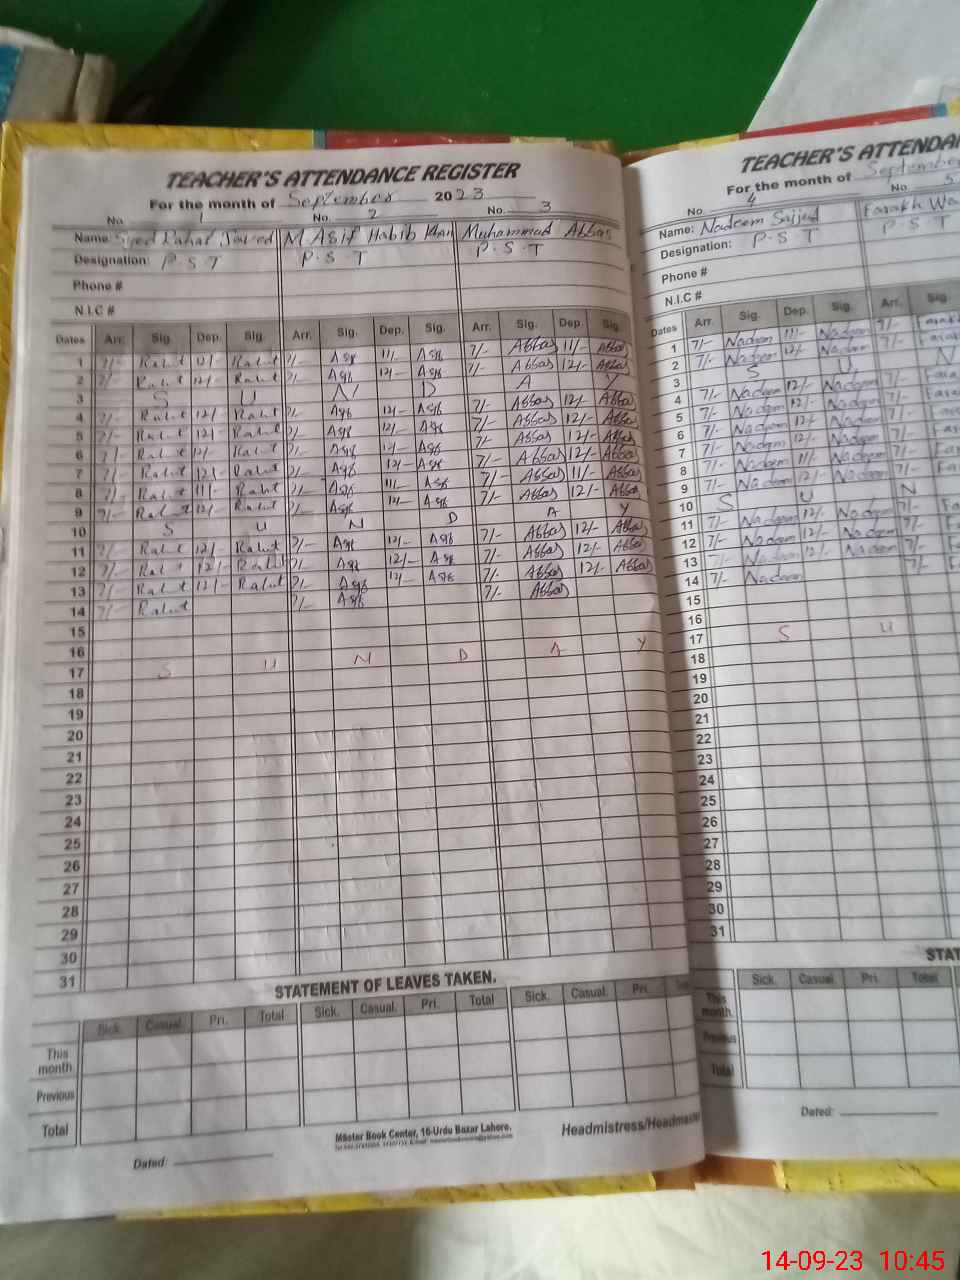 TEACHER'S ATTENDANCE REGISTER
For the month of September 2023
No. 1 No. 2 No. 3
Name: Syed Rahat Javed M Asif Habib Khan Muhammad Abbas
Designation: P.S.T P.S.T P.S.T
Phone #
N.I.C #
Dates Arr. Sig. Dep. Sig. Arr. Sig. Dep. Sig. Arr. Sig. Dep. Sig.
1 7/- Rahat 12/- Rahat 7/- Asif 11/- Asif 7/- Abbas 11/- Abbas
2 7/- Rahat 12/- Rahat 7/- Asif 12/- Asif 7/- Abbas 12/- Abbas
3 S U N D A Y
4 7/- Rahat 12/- Rahat 7/- Asif 12/- Asif 7/- Abbas 12/- Abbas
5 7/- Rahat 12/- Rahat 7/- Asif 12/- Asif 7/- Abbas 12/- Abbas
6 7/- Rahat 12/- Rahat 7/- Asif 12/- Asif 7/- Abbas 12/- Abbas
7 7/- Rahat 12/- Rahat 7/- Asif 12/- Asif 7/- Abbas 12/- Abbas
8 7/- Rahat 11/- Rahat 7/- Asif 11/- Asif 7/- Abbas 11/- Abbas
9 7/- Rahat 12/- Rahat 7/- Asif 12/- Asif 7/- Abbas 12/- Abbas
10 S U N D A Y
11 7/- Rahat 12/- Rahat 7/- Asif 12/- Asif 7/- Abbas 12/- Abbas
12 7/- Rahat 12/- Rahat 7/- Asif 12/- Asif 7/- Abbas 12/- Abbas
13 7/- Rahat 12/- Rahat 7/- Asif 12/- Asif 7/- Abbas 12/- Abbas
14 7/- Rahat 7/- Asif 7/- Abbas
15
16
17 S U N D A Y
18
19
20
21
22
23
24
25
26
27
28
29
30
31
STATEMENT OF LEAVES TAKEN.
Sick. Casual. Pri. Total Sick. Casual. Pri. Total Sick. Casual. Pri.
This month
Previous
Total
Master Book Center, 16-Urdu Bazar Lahore.
Headmistress/Headmaster
Dated:
TEACHER'S ATTENDA
For the month of September
No. 4 No. 5
Name: Nadeem Sajjad Farakh Wa
Designation: P.S.T P.S.T
Phone #
N.I.C #
Dates Arr. Sig. Dep. Sig. Arr. Sig.
1 7/- Nadeem 11/- Nadeem 7/- Farak
2 7/- Nadeem 12/- Nadeem 7/- Fara
3 S U N
4 7/- Nadeem 12/- Nadeem 7/- Fara
5 7/- Nadeem 12/- Nadeem 7/- Fara
6 7/- Nadeem 12/- Nadeem 7/- Far
7 7/- Nadeem 12/- Nadeem 7/- Far
8 7/- Nadeem 11/- Nadeem 7/- Far
9 7/- Nadeem 12/- Nadeem 7/- Fa
10 S U N
11 7/- Nadeem 12/- Nadeem 7/- Fa
12 7/- Nadeem 12/- Nadeem 7/- Fa
13 7/- Nadeem 12/- Nadeem 7/- Fa
14 7/- Nadeem 7/- Fa
15
16
17 S U
18
19
20
21
22
23
24
25
26
27
28
29
30
31
STAT
Sick. Casual. Pri. Total
This month
Previous
Total
Dated:
14-09-23 10:45